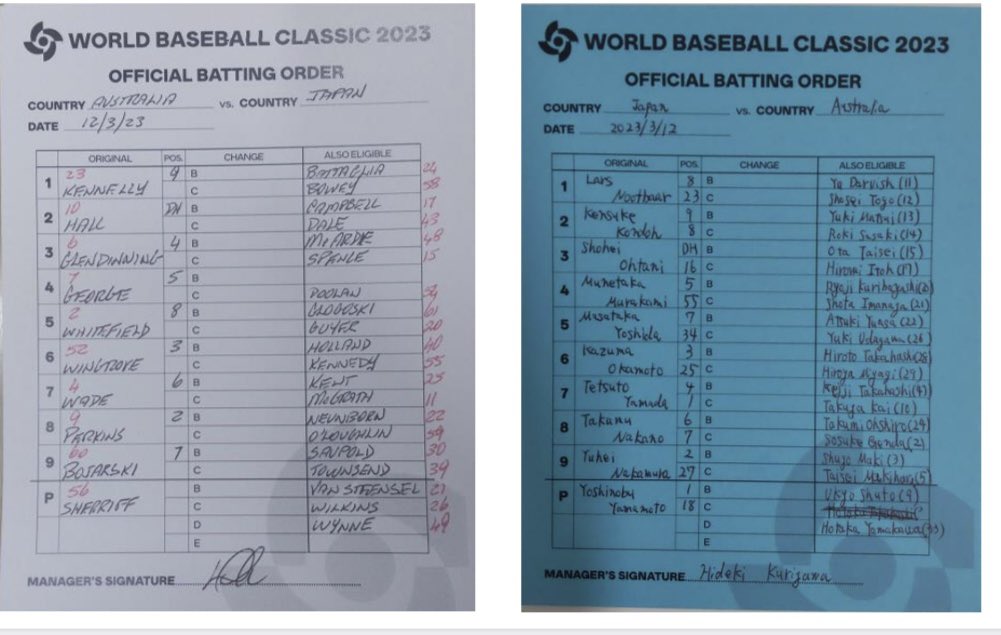 WORLD BASEBALL CLASSIC 2023
OFFICIAL BATTING ORDER
COUNTRY AUSTRALIA vs. COUNTRY JAPAN
DATE 12/3/23
ORIGINAL POS. CHANGE ALSO ELIGIBLE
1 23 9 B BATTAGLIA 24
KENNELLY C BOWEY 58
2 10 DH B CAMPBELL 17
HALL C DALE 43
3 6 4 B McARDLE 48
GLENDINNING C SPENCE 15
4 7 5 B
GEORGE C DOOLAN 54
5 2 8 B GLOGOSKI 61
WHITEFIELD C GUYER 20
6 52 3 B HOLLAND 40
WINGROVE C KENNEDY 55
7 4 6 B KENT 25
WADE C McGRATH 11
8 9 2 B NEUNBORN 22
PERKINS C O'LOUGHLIN 59
9 60 7 B SAUPOLD 30
BOJARSKI C TOWNSEND 39
P 56 B VAN STEENSEL 21
SHERRIFF C WILKINS 26
D WYNNE 49
E
MANAGER'S SIGNATURE
WORLD BASEBALL CLASSIC 2023
OFFICIAL BATTING ORDER
COUNTRY Japan vs. COUNTRY Australia
DATE 2023/3/12
ORIGINAL POS. CHANGE ALSO ELIGIBLE
1 Lars 8 B Yu Darvish (11)
Nootbaar 23 C Shosei Togo (12)
2 Kensuke 9 B Yuki Matsui (13)
Kondoh 8 C Roki Sasaki (14)
3 Shohei DH B Ota Taisei (15)
Ohtani 16 C Hiromi Itoh (17)
4 Munetaka 5 B Ryoji Kuribayashi (20)
Murakami 55 C Shota Imanaga (21)
5 Masataka 7 B Atsuki Yuasa (22)
Yoshida 34 C Yuki Udagawa (26)
6 Kazuma 3 B Hiroto Takahashi (28)
Okamoto 25 C Hiroya Miyagi (29)
7 Tetsuto 4 B Keiji Takahashi (41)
Yamada 1 C Takuya Kai (10)
8 Takumu 6 B Takumi Ohshiro (24)
Nakano 7 C Sosuke Genda (2)
9 Yuhei 2 B Shugo Maki (3)
Nakamura 27 C Taisei Makihara (5)
P Yoshinobu 1 B Ukyo Shuto (9)
Yamamoto 18 C
D Hotaka Yamakawa (33)
E
MANAGER'S SIGNATURE Hideki Kuriyama